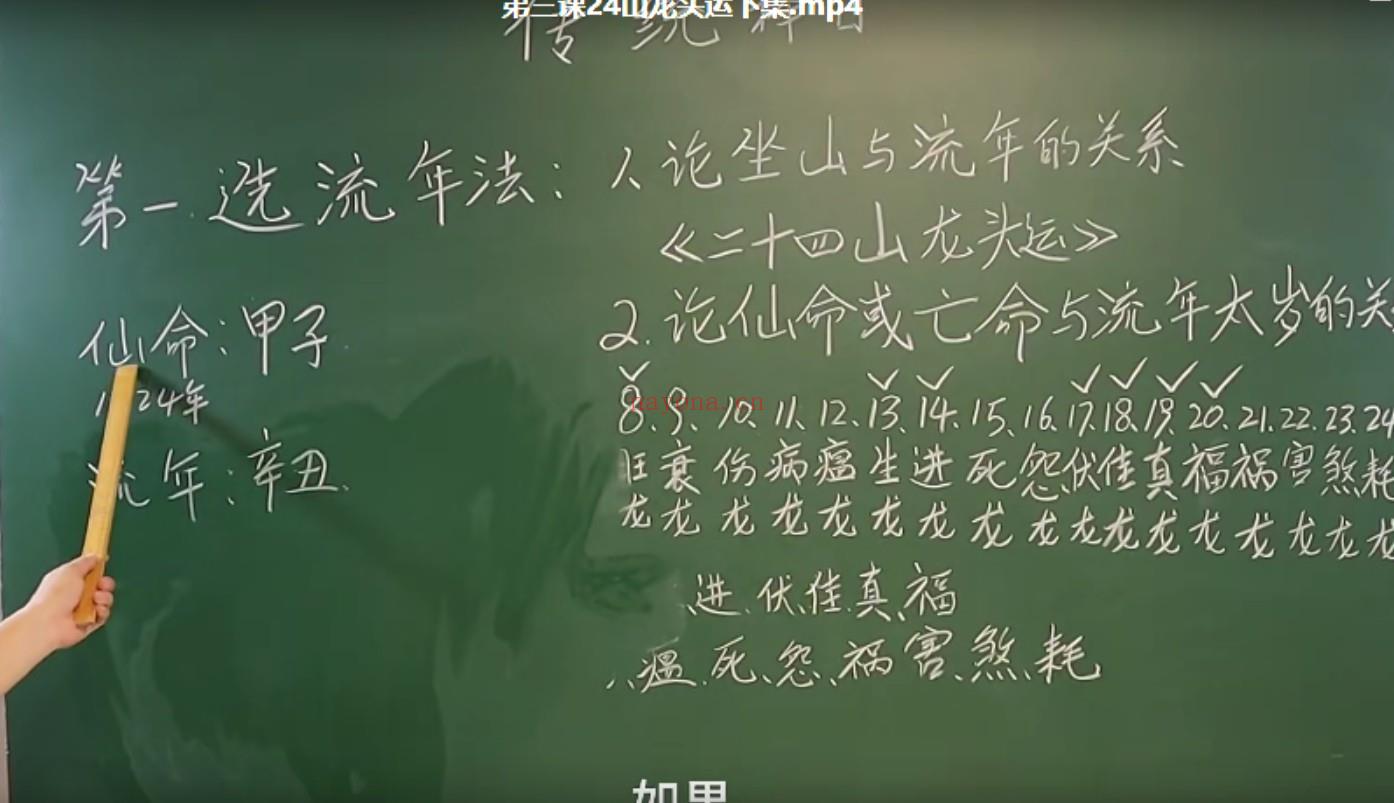 第三课24山龙头运下集.mp4
传统择日
第一选流年法：1、论坐山与流年的关系
《二十四山龙头运》
2.论仙命或亡命与流年太岁的关
仙命：甲子
24年
流年：辛丑.
8、9、10、11、12、13、14、15、16、17、18、19、20、21、22、23、24
旺衰伤病瘟生进死怨伏佳真福祸害煞耗
龙龙龙龙龙龙龙龙龙龙龙龙龙龙龙龙龙
、进、伏、佳、真、福
、瘟、死、怨、祸、害、煞、耗
nayona.cn
如果